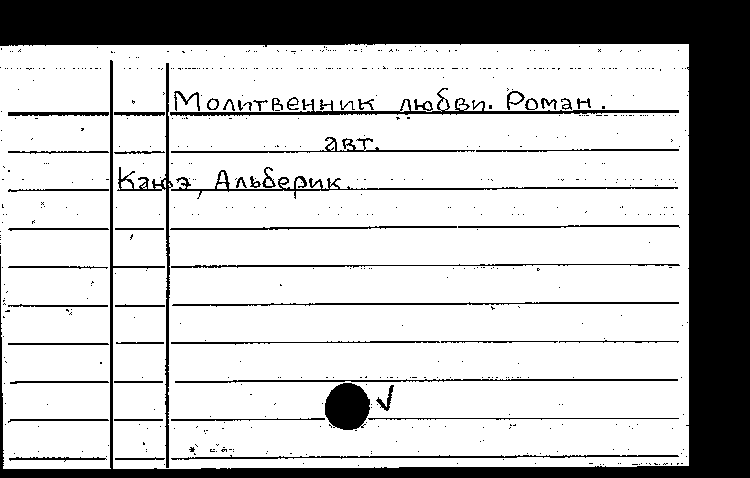 Молитвенник любви. Роман.
авт.
Каюэ, Альберик.